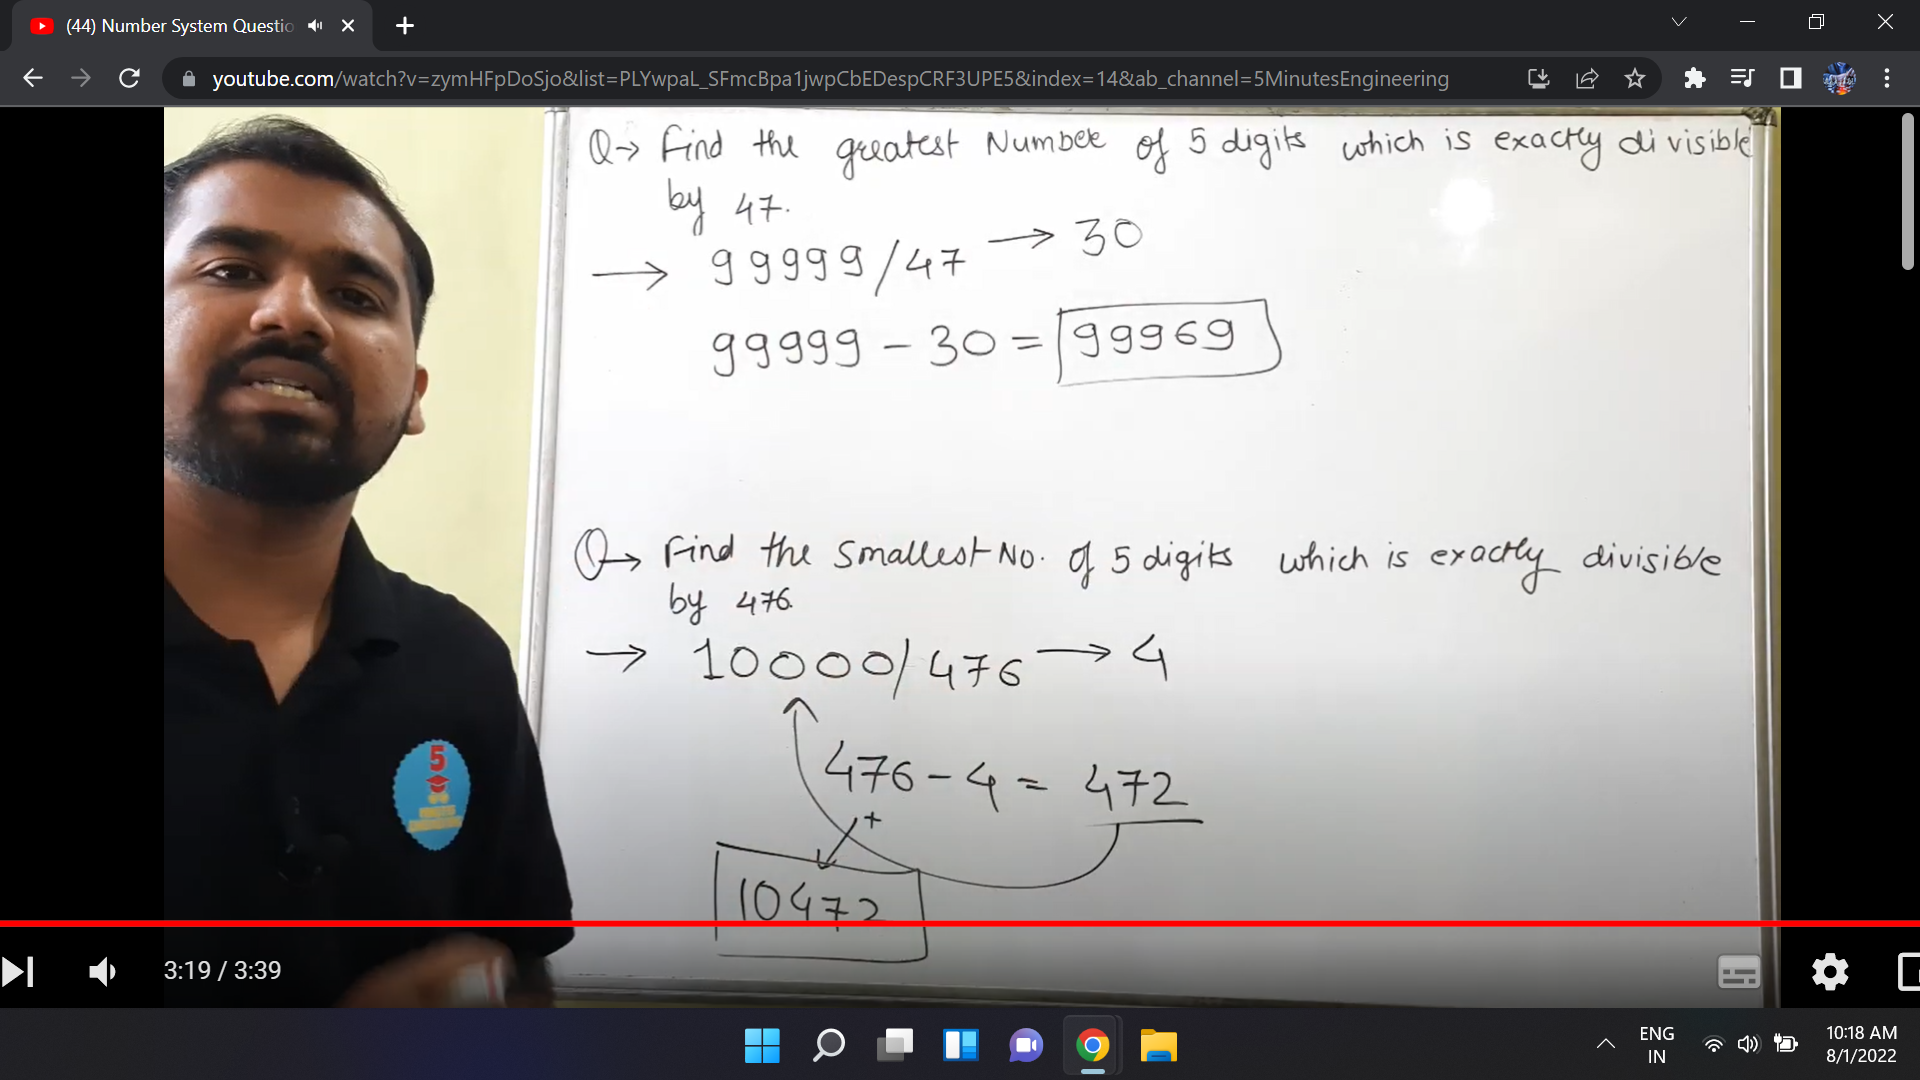 (44) Number System Questio
youtube.com/watch?v=zymHFpDoSjo&list=PLYwpaL_SFmcBpa1jwpCbEDespCRF3UPE5&index=14&ab_channel=5MinutesEngineering
Q→ Find the greatest Number of 5 digits which is exactly divisible
by 47.
→ 99999/47 → 30
99999 - 30 = 99969
Q→ Find the smallest No. of 5 digits which is exactly divisible
by 476.
→ 10000/476 → 4
476 - 4 = 472
+
10472
5
3:19 / 3:39
ENG
IN
10:18 AM
8/1/2022